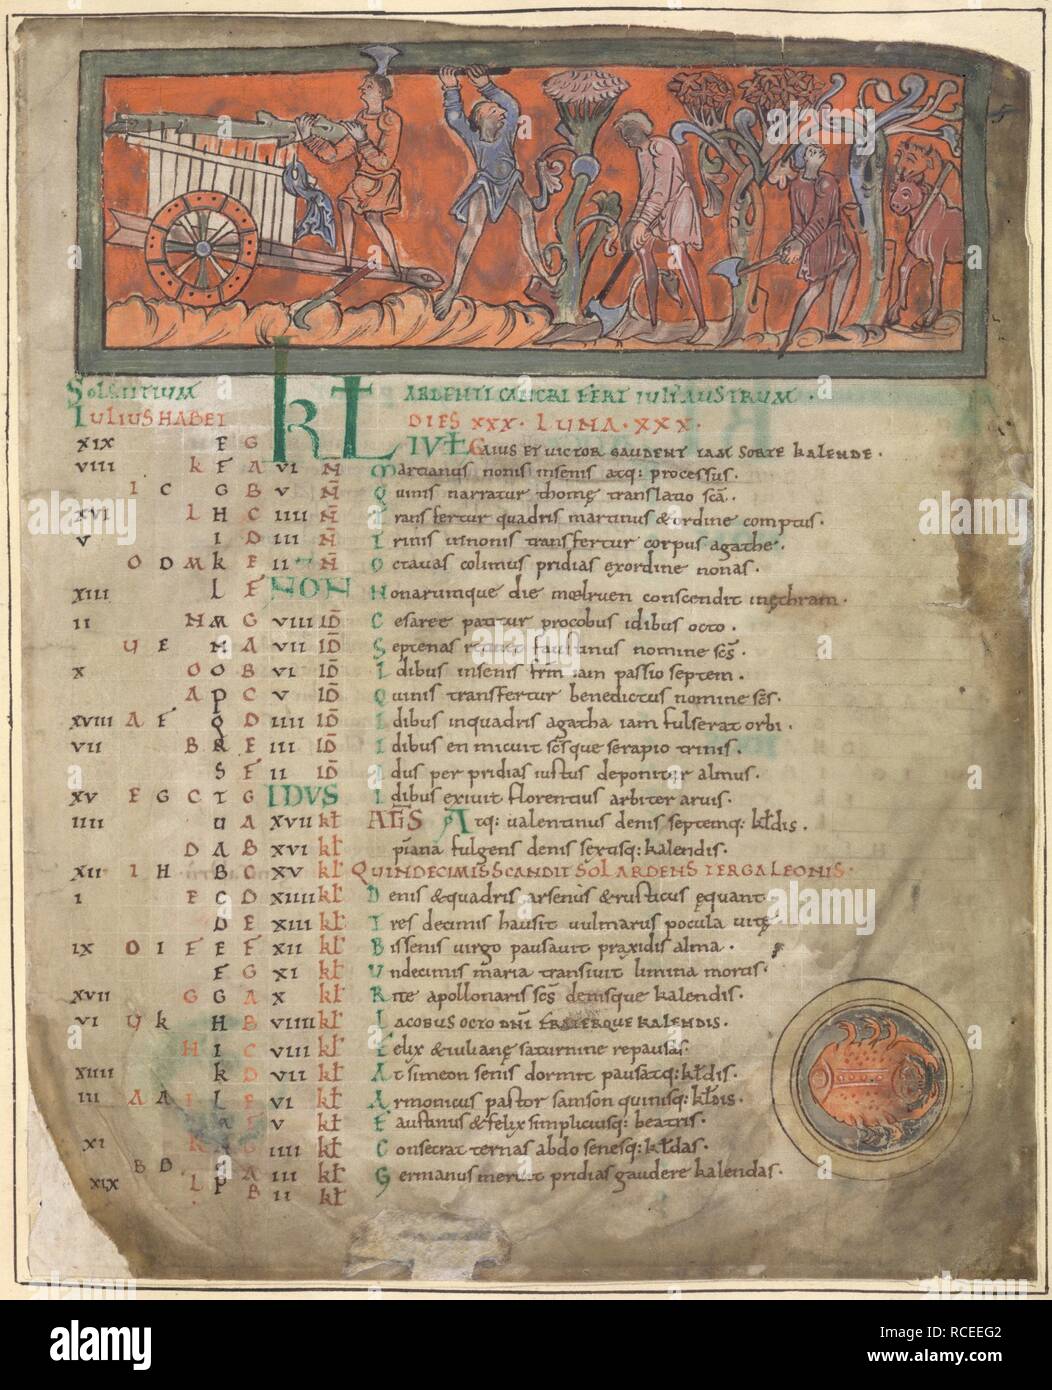 SOLSTITIUM
IULIUS HABET
KL ARDENTI CANCRI FERT IULI AUSTRUM.
DIES XXX. LUNA. XXX.
XIX F G IULI GAIUS ET VICTOR GAUDENT IAM SORTE KALENDE.
VIII K F A VI N Martianus nonis insenis atq: processus.
I C G B V N Quinis narratur thomę translatio scā.
XVI L H C IIII N Transfertur quadris martinus & ordine comptus.
V I D III N Trinis uinonis transfertur corpus agathe.
O D M K E II N Octauas colimus pridias exordine nonas.
XIII L F NON Honarumque die moelruen conscendit inęthram.
II N M G VIII ID Cesaree patitur procobus idibus octo.
Y E N A VII ID Septenas faustinus nomine scs.
X O O B VI ID Idibus insenis frm iam passio septem.
A P C V ID Quinis transfertur benedictus nomine scs.
XVIII A F Q D IIII ID Idibus inquadris agatha iam fulserat orbi.
VII B R E III ID Idibus en micuit scsque serapio trinis.
S F II ID Idus per pridias iustus deponitur almus.
XV E G C T G IDVS Idibus exiuit florentius arbiter aruis.
IIII U A XVII KL AGS Atq: ualentinus denis septemq: kldis.
D A B XVI KL piana fulgens denis sextisq: kalendis.
XII I H B C XV KL QUINDECIMIS SCANDIT SOL ARDENS TERGA LEONIS.
I E C D XIIII KL Denis & quadris arsenius & rusticus ęquant
D E XIII KL Tres decimis hausit uulmarus pocula uitę
IX O I F E F XII KL Bissenis uirgo pausauit praxidis alma.
F G XI KL Undecimis maria transiuit limina mortis.
XVII G G A X KL Rite apollonaris scs denisque kalendis.
VI Y K H B VIIII KL IACOBUS OCTO DNI FRATERQUE KALENDIS.
H I C VIII KL Felix & iulianę saturnine repausas.
XIIII K D VII KL At simeon senis dormit pausatq: kldis.
III A A I L E VI KL Armonicus pastor samson quinisq: kldis.
F V KL Faustinus & felix simpliciusq: beatris.
XI K G IIII KL Consecrat ternas abdo senesq: kldas.
B D A III KL Germanus meruit pridias gaudere kalendas.
XIX L P B II KL
alamy
Image ID: RCEEG2
www.alamy.com